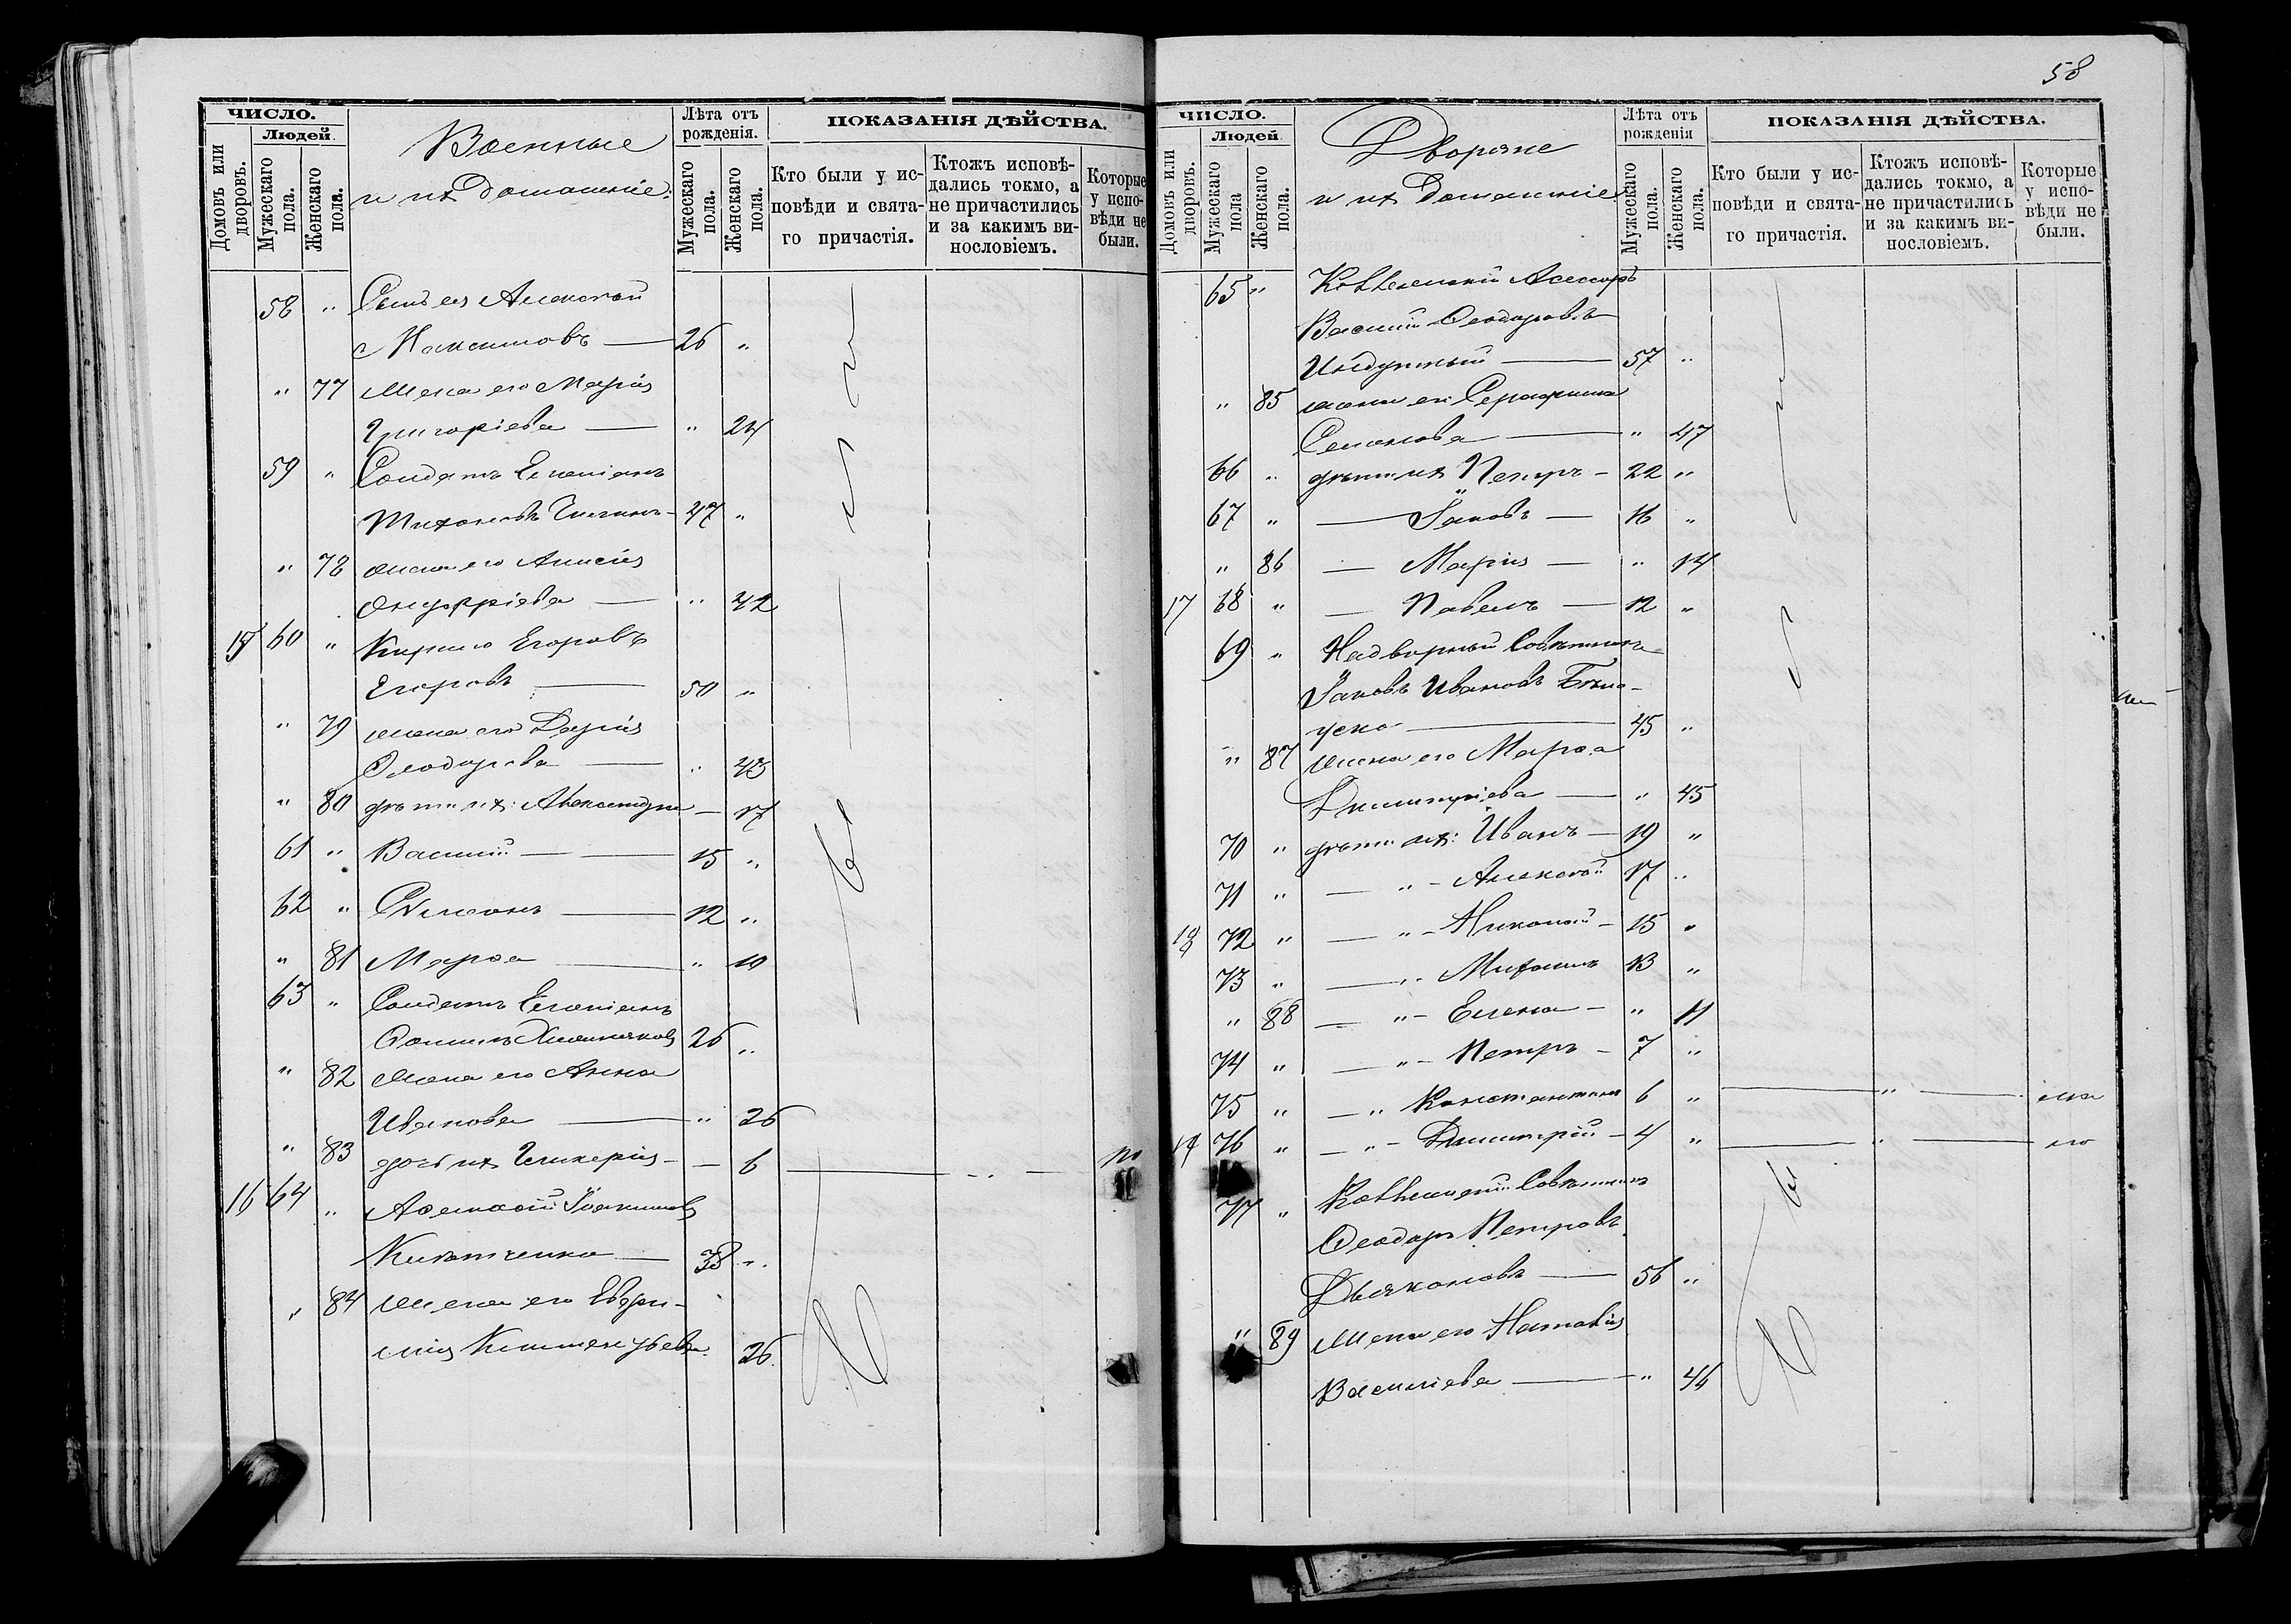 ЧИСЛО.
Людей.
Домовъ или дворовъ.
Мужескаго пола.
Женскаго пола.
Военные
и их домашніе:
Лѣта отъ рожденія.
Мужескаго пола.
Женскаго пола.
ПОКАЗАНІЯ ДѢЙСТВА.
Кто были у исповѣди и святаго причастія.
Ктожъ исповѣдались токмо, а не причастились и за какимъ винословіемъ.
Которые у исповѣди не были.
58 " Сынъ ея Алексѣй
Максимовъ — 26 "
" 77 Жена его Марія
Григоріева — " 24
59 " Солдатъ
Тихоновъ — 47 "
" 78 жена его Анисія
Онуфріева — " 42
15 60 " Кирило Егоровъ
Егоровъ — 50 "
" 79 жена его Дарія
Ѳеодорова — " 43
" 80 дѣти их: Александра — 17
61 " Василій — 15 "
62 " Симеонъ — 12 "
" 81 Марѳа — " 10
63 " Солдатъ
26 "
" 82 Жена его Анна
Иванова — " 26
" 83 дочь их Гликерія — — 6 — " —
16 64 " Алексѣй Іоакимовъ
38 "
" 84 Жена его Евдо-
кія 26.
58
ЧИСЛО.
Людей.
Домовъ или дворовъ.
Мужескаго пола
Женскаго пола.
Дворяне
и их Домашніе
Лѣта отъ рожденія
Мужескаго пола.
Женскаго пола.
ПОКАЗАНІЯ ДѢЙСТВА.
Кто были у исповѣди и святаго причастія.
Ктожъ исповѣдались токмо, а не причастились и за какимъ винословіемъ.
Которые у исповѣди не были.
65 " Коллежскій Асесоръ
Василій Ѳеодоровъ
57 "
" 85 жена его Серафима
Семенова — " 47
66 " дѣти их Петръ — 22 "
67 " — Іаковъ — 16 "
" 86 — Марія — " 14
17 68 " — Павелъ — 12 "
69 " Надворный Совѣтникъ
Іаковъ Ивановъ Бѣло-
уско — 45 "
" 87 жена его Марѳа
Димитріева — " 45
70 " дѣти их: Иванъ — 19 "
71 " — " — Алексѣй 17 "
18 72 " — " — Николай — 15 "
73 " — " Михаилъ 13 "
" 88 — " — Елена — " 11
74 " — " — Петръ — 7 "
75 " — " Константинъ 6 " — " —
19 76 " — " — Димитрій — 4 " — " —
77 " Коллежскій Совѣтникъ
Ѳеодоръ Петровъ
Дьяконовъ — 56 "
" 89 Жена его Наталія
Василіева — " 46